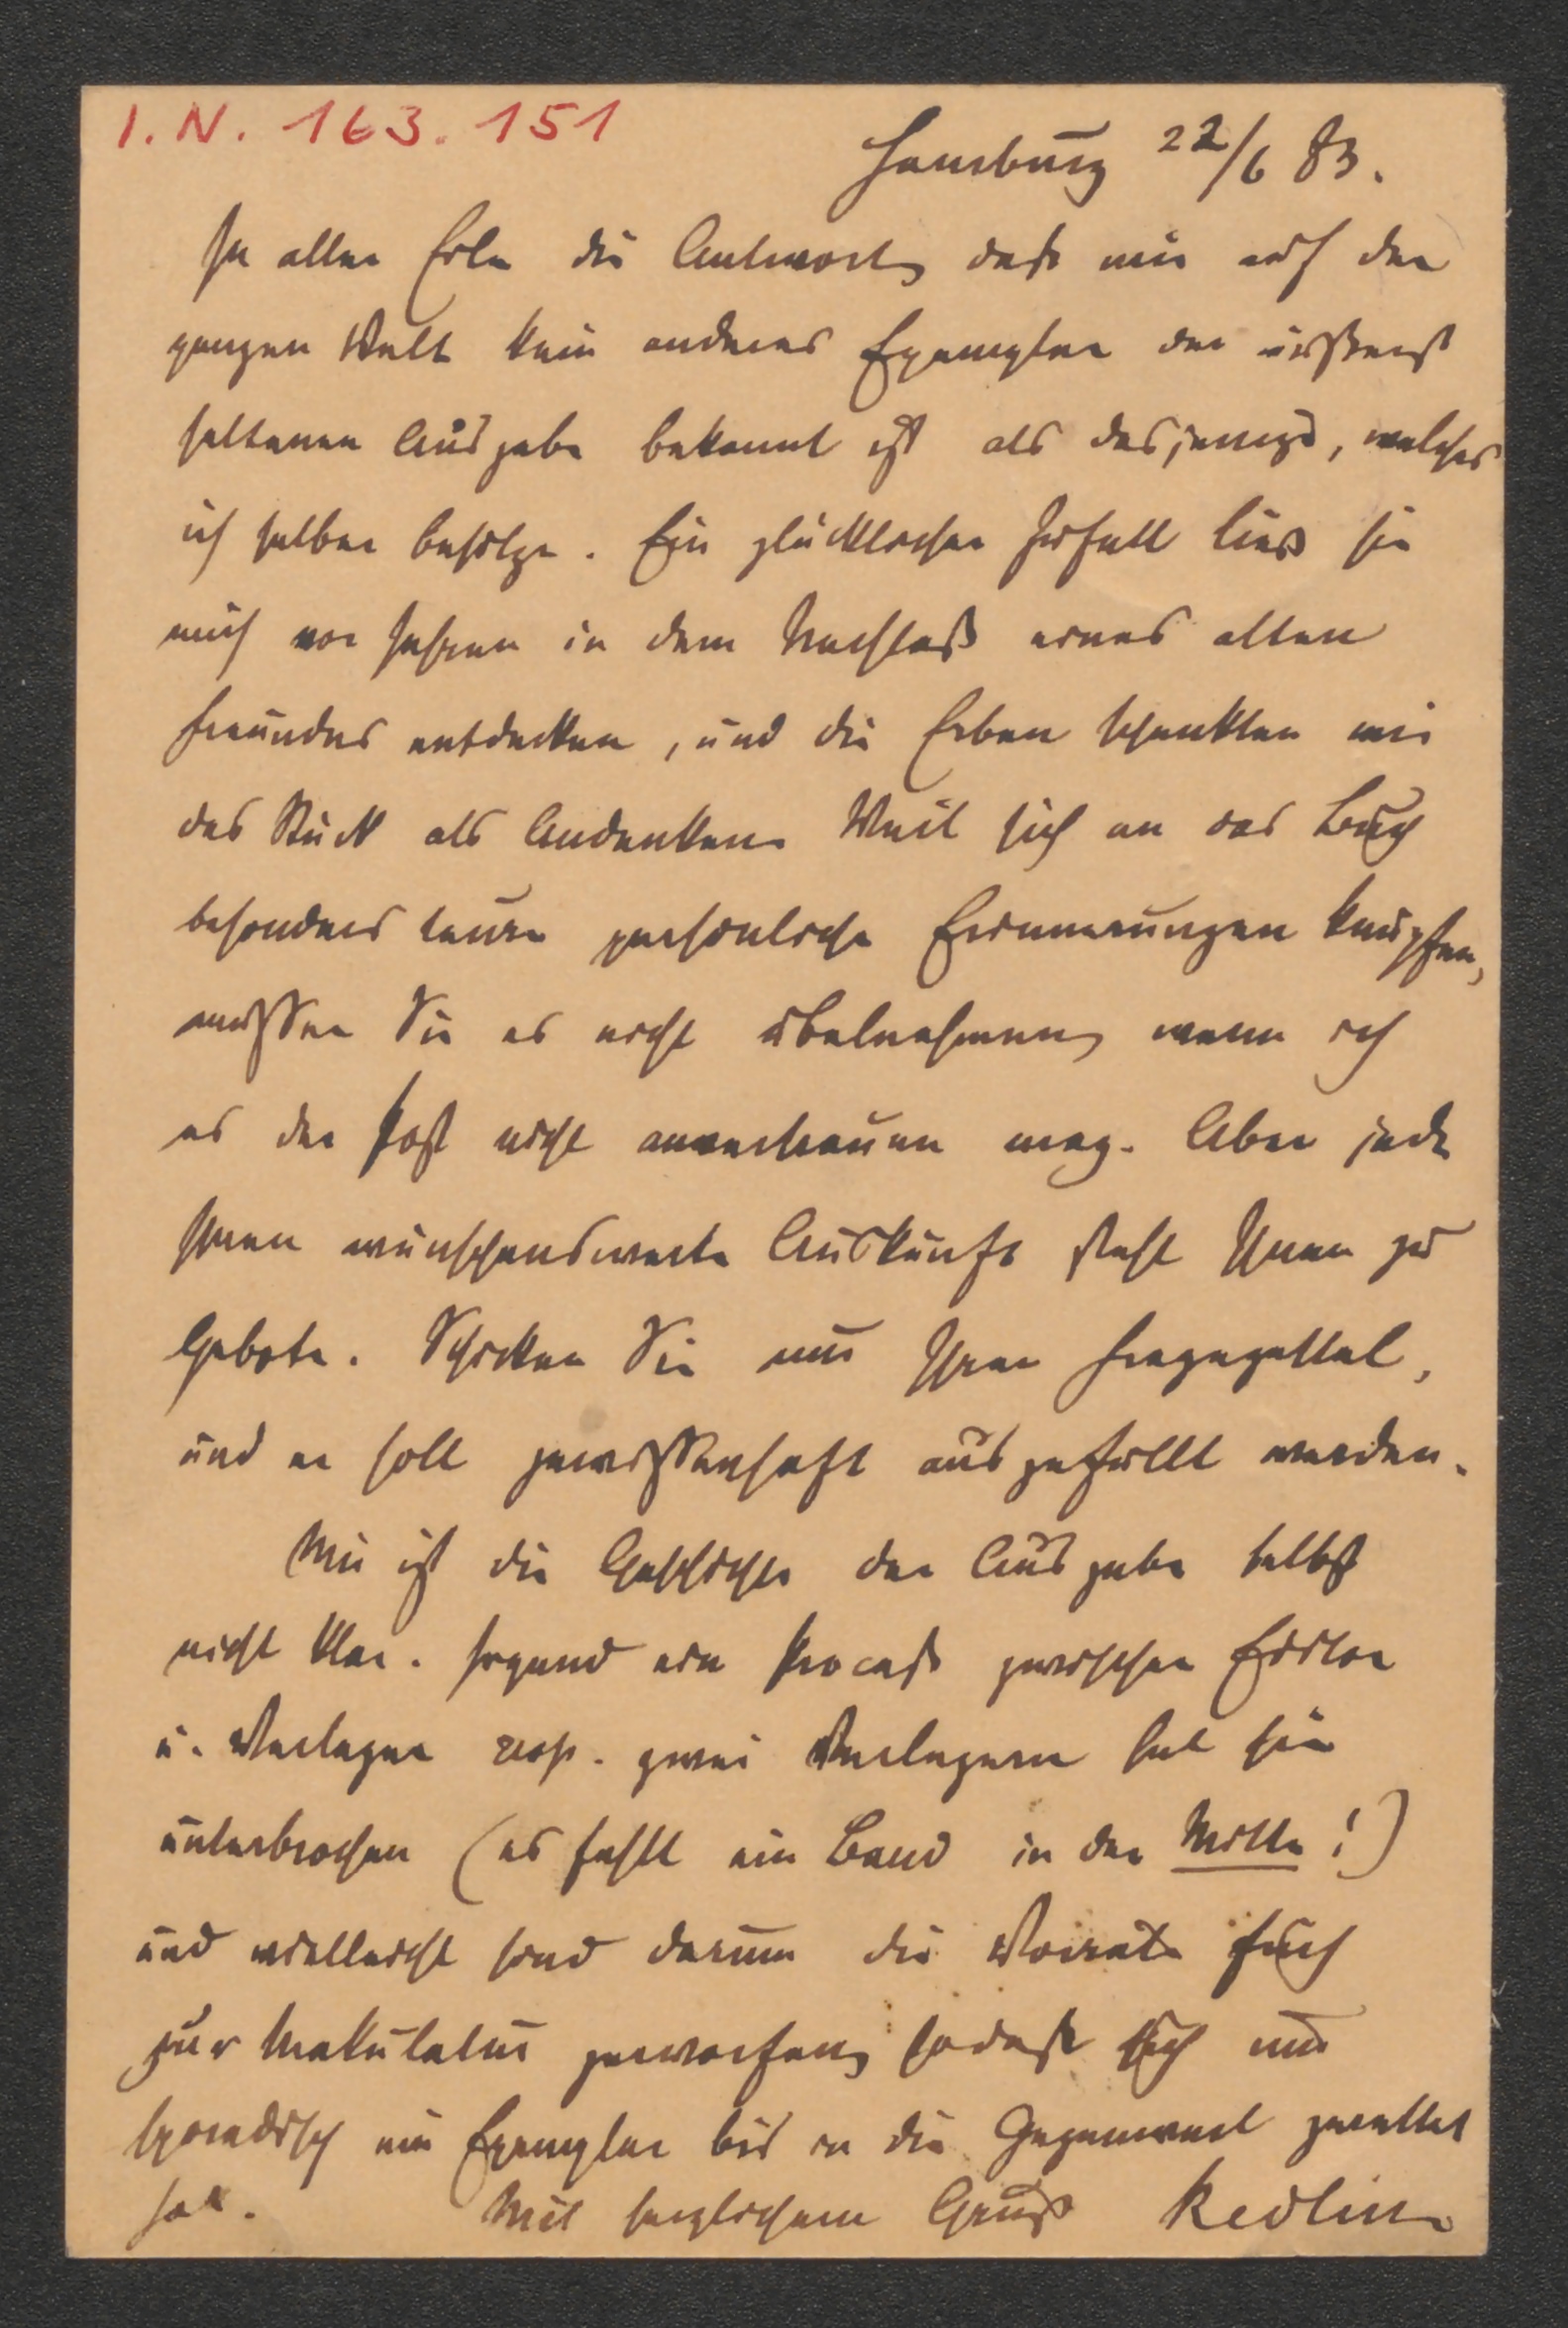 I.N. 163.151
Hamburg 22/6 83.
In aller Eile die Antwort, daß mir auf der
ganzen Welt kein anderes Exemplar der äußerst
seltenen Ausgabe bekannt ist als dasjenige, welches
ich selber besitze. Ein glücklicher Zufall ließ sie
mich vor Jahren in dem Nachlaß eines alten
Freundes entdecken, und die Erben schenkten mir
das Stück als Andenken. Weil sich an das Buch
besonders teure persönliche Erinnerungen knüpfen,
müssen Sie es nicht übelnehmen, wenn ich
es der Post nicht anvertrauen mag. Aber jede
Ihnen wünschenswerte Auskunft steht Ihnen zu
Gebote. Schicken Sie nur Ihren Fragezettel,
und er soll gewissenhaft ausgefüllt werden.
Mir ist die Geschichte der Ausgabe selbst
nicht klar. Irgend ein Proceß zwischen Editor
u. Verleger resp. zwei Verlegern hat sie
unterbrochen (es fehlt ein Band in der Mitte!)
und vielleicht sind darum die Vorräte
zur Makulatur geworfen, sodaß sich nur
sporadisch ein Exemplar bis in die Gegenwart gerettet
hat. Mit herzlichem Gruß Redlich